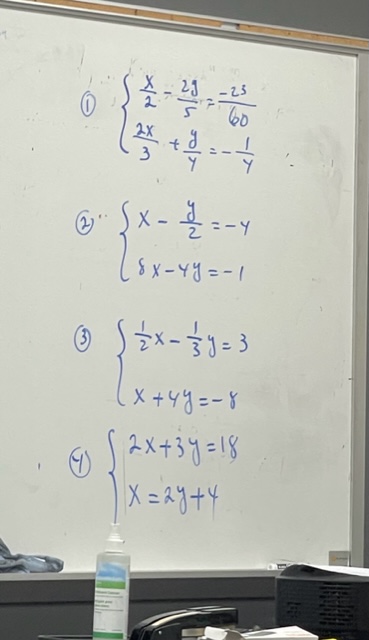 ① { x/2 - 2y/5 = -23/60
2x/3 + y/4 = -1/4
② { x - y/2 = -4
8x - 4y = -1
③ { 1/2 x - 1/3 y = 3
x + 4y = -8
④ { 2x + 3y = 18
x = 2y + 4